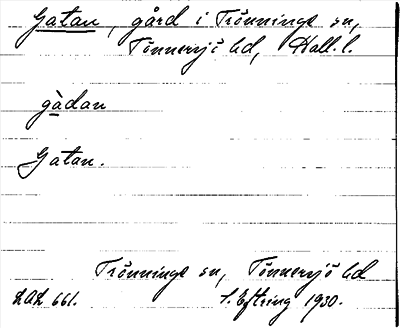 Gatan, gård i Trönninge sn,
Tönnersjö hd, Hall. l.
gàdan
Gatan.
Trönninge sn, Tönnersjö hd
LAL 661. S. Eftring 1930.